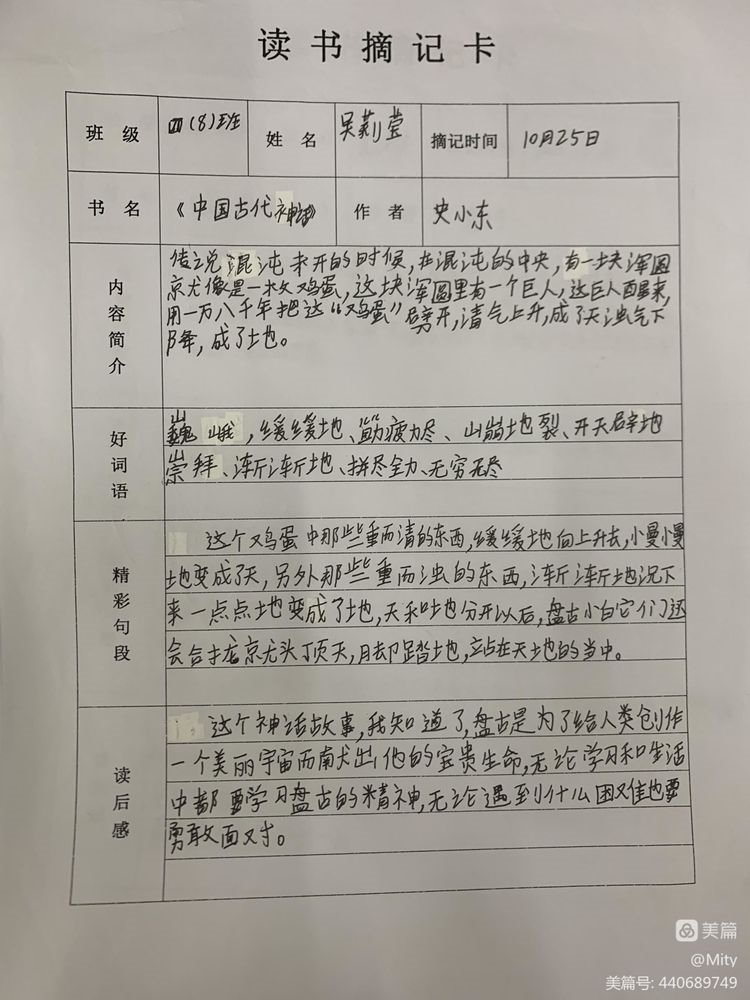 读书摘记卡
班级 四(8)班 姓名 吴莉莹 摘记时间 10月25日
书名 《中国古代神话》 作者 史小东
内容简介
传说混沌未开的时候,在混沌的中央,有一块浑圆
就像是一枚鸡蛋,这块浑圆里有一个巨人,这巨人醒来,
用一万八千年把这“鸡蛋”劈开,清气上升,成了天浊气下
降,成了土地。
好词语
巍峨,缓缓地、筋疲力尽、山崩地裂、开天辟地
崇拜、渐渐地、拼尽全力、无穷无尽
精彩句段
这个鸡蛋中那些重而清的东西,缓缓地向上升去,慢慢
地变成了天,另外那些重而浊的东西,渐渐地沉下
来一点点地变成了地,天和地分开以后,盘古怕它们还
会合拢就头顶天,脚踏地,站在天地的当中。
读后感
这个神话故事,我知道了,盘古是为了给人类创作
一个美丽宇宙而献出他的宝贵生命,无论学习和生活
中都要学习盘古的精神,无论遇到什么困难也要
勇敢面对。
美篇
@Mity
美篇号: 440689749